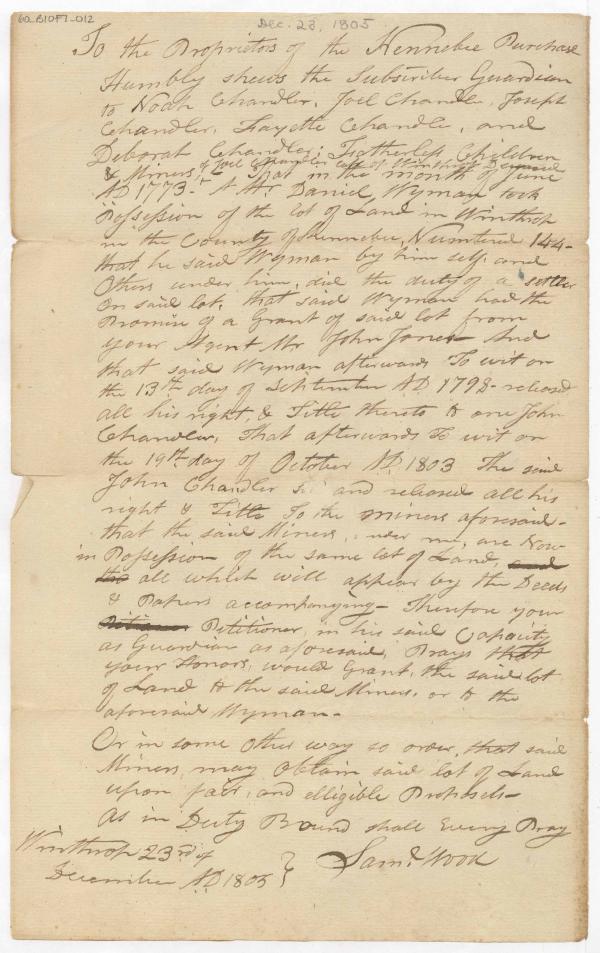 60_B10F7_012
Dec. 23, 1805
To the Proprietors of the Kennebec Purchase
Humbly shews the Subscriber Guardian
to Noah Chandler, Joel Chandler, Joseph
Chandler, Fayette Chandler, and
Deborah Chandler; Fatherless Children
of Joel Chandler late of Winthrop Deceased
& Miners, That in the month of June
AD 1773. Mr Daniel Wyman took
Possession of the lot of Land in Winthrop
in the County of Kennebec, Numbered 144-
that he said Wyman by him self and
Others under him, did the duty of a settler
on said lot, that said Wyman had the
Promise of a Grant of said lot from
your Agent Mr John Jones And
that said Wyman afterwards To wit on
the 13th day of September AD 1798- released
all his right, & Title thereto to one John
Chandler, That afterwards To wit on
the 19th day of October AD 1803 The said
John Chandler and released all his
right & Title To the miners aforesaid-
that the said Miners, under me, are Now
in Possession of the same lot of Land, and
all which will appear by the Deeds
& Papers accompanying- Therefore your
Petitioner, in his said Capacity
as Guardian as aforesaid, Prays that
your Honors, would Grant, the said lot
of Land to the said Miners, or to the
aforesaid Wyman-
Or in some other way so order, that said
Miners, may obtain said lot of Land
upon fair, and elligible Proposels-
As in Duty Bound shall Every Pray
Winthrop 23rd of
December AD 1805 } Saml Wood